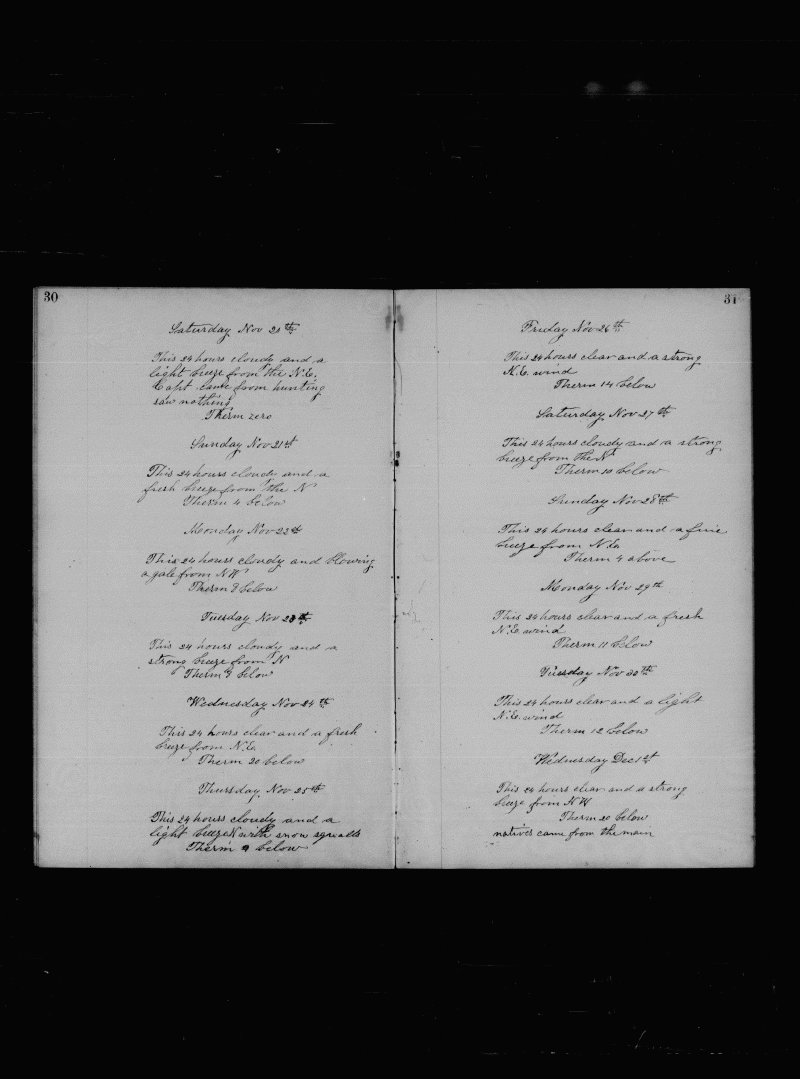 30
Saturday Nov 20th
This 24 hours cloudy and a
light breeze from the N.E.
Capt. came from hunting
saw nothing
Therm zero
Sunday Nov 21st
This 24 hours cloudy and a
fresh breeze from the N
Therm 4 below
Monday Nov 22nd
This 24 hours cloudy and blowing
a gale from NW
Therm 8 below
Tuesday Nov 23rd
This 24 hours cloudy and a
strong breeze from N
Therm 8 below
Wednesday Nov 24th
This 24 hours clear and a fresh
breeze from N.E.
Therm 20 below
Thursday Nov 25th
This 24 hours cloudy and a
light breeze N with snow squalls
Therm 9 below
31
Friday Nov 26th
This 24 hours clear and a strong
N.E. wind
Therm 14 below
Saturday Nov 27th
This 24 hours cloudy and a strong
breeze from the N
Therm 10 below
Sunday Nov 28th
This 24 hours clear and a fine
breeze from N.E.
Therm 4 above
Monday Nov 29th
This 24 hours clear and a fresh
N.E. wind
Therm 11 below
Tuesday Nov 30th
This 24 hours clear and a light
N.E. wind
Therm 12 below
Wednesday Dec 1st
This 24 hours clear and a strong
breeze from NW
Therm 20 below
natives came from the main